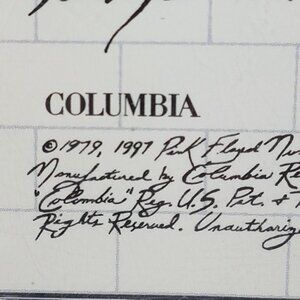 COLUMBIA
©1979, 1997 Pink Floyd
Manufactured by Columbia
"Columbia" Reg. U.S. Pat. &
Rights Reserved.